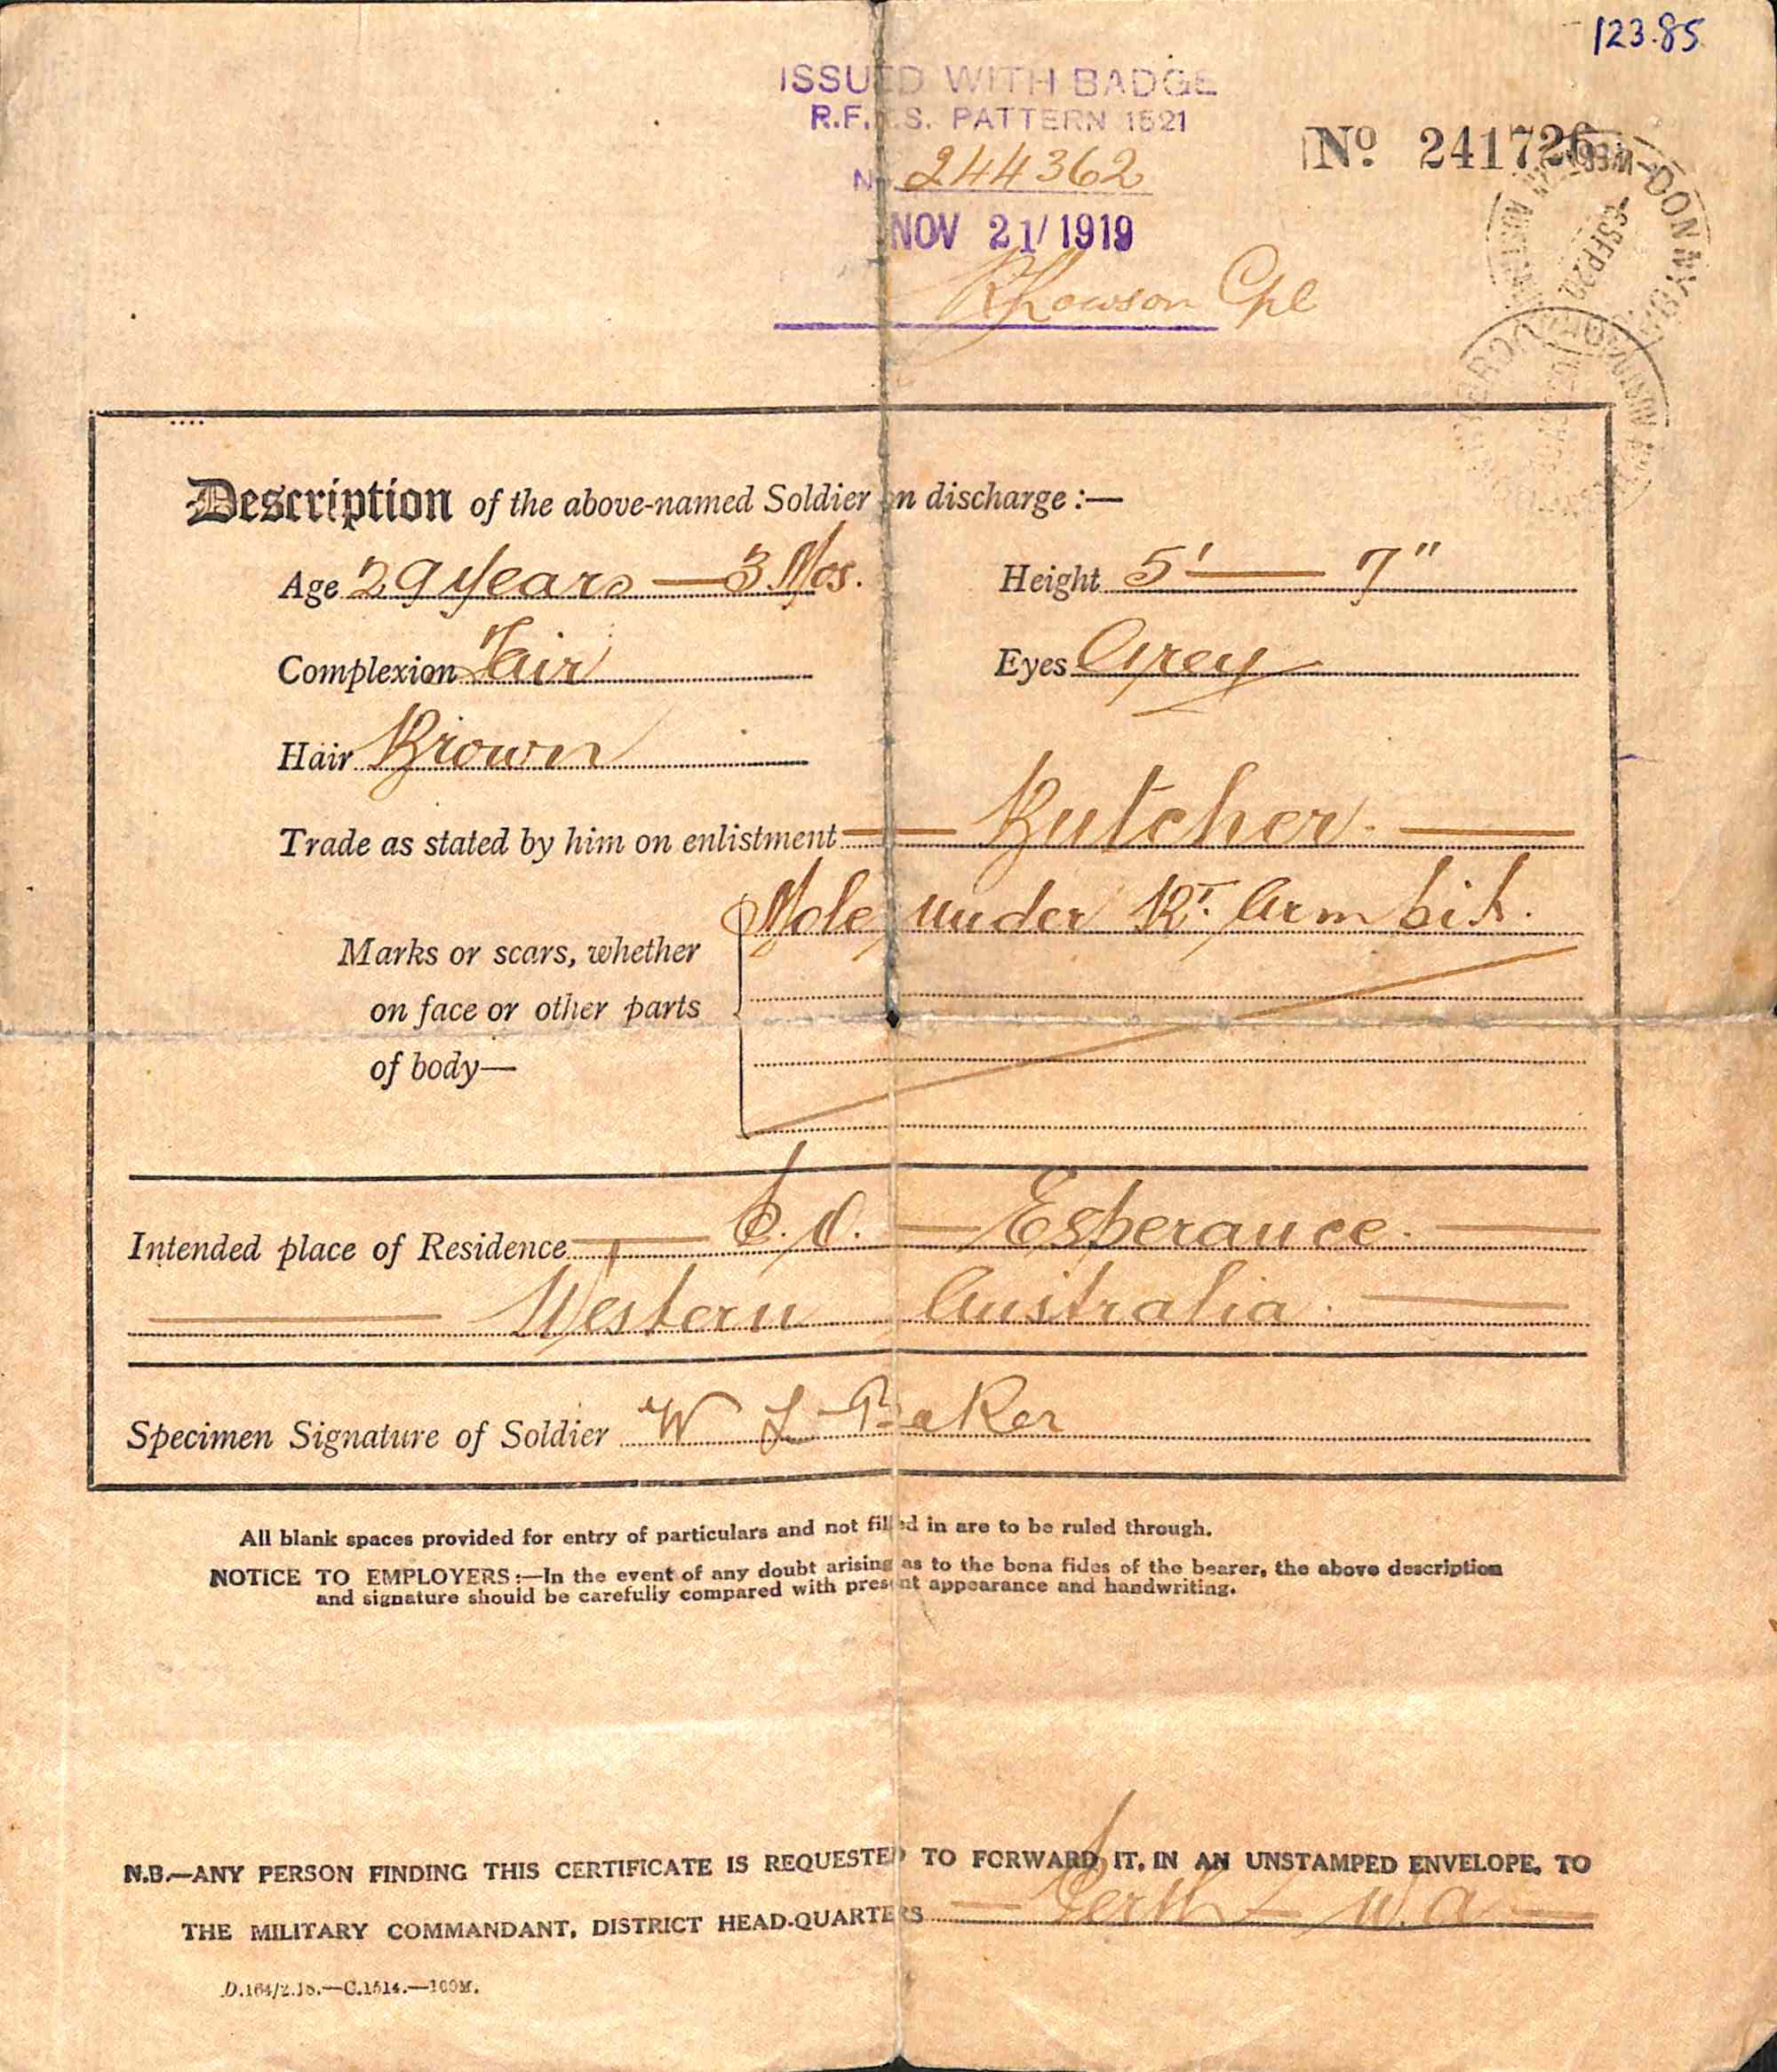 123.85
ISSUED WITH BADGE
R.F. .S. PATTERN 1521
No 244362
No. 241726
NOV 21/1919
Cpl
DONNYBROOK
Description of the above-named Soldier on discharge :—
Age 29 years — 3 Mos. Height 5' — 7"
Complexion Fair Eyes Grey
Hair Brown
Trade as stated by him on enlistment — Butcher. —
Mole under Rt. Arm pit.
Marks or scars, whether
on face or other parts
of body—
Intended place of Residence — P.O. — Esperance. —
— Western Australia. —
Specimen Signature of Soldier W L Baker
All blank spaces provided for entry of particulars and not filled in are to be ruled through.
NOTICE TO EMPLOYERS:—In the event of any doubt arising as to the bona fides of the bearer, the above description
and signature should be carefully compared with present appearance and handwriting.
N.B.—ANY PERSON FINDING THIS CERTIFICATE IS REQUESTED TO FORWARD IT, IN AN UNSTAMPED ENVELOPE, TO
THE MILITARY COMMANDANT, DISTRICT HEAD-QUARTERS — Perth — W.A —
D.164/2.18.—C.1514.—100M.